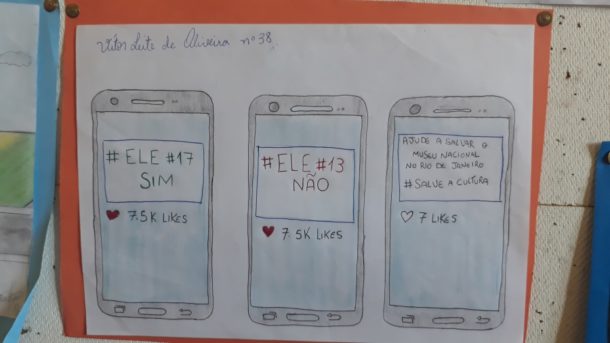 Vitor Leite de Oliveira nº 38.
# ELE #17
SIM
7.5K LIKES
# ELE #13
NÃO
7.5K LIKES
AJUDE A SALVAR O
MUSEU NACIONAL
NO RIO DE JANEIRO
# SALVE A CULTURA
7 LIKES